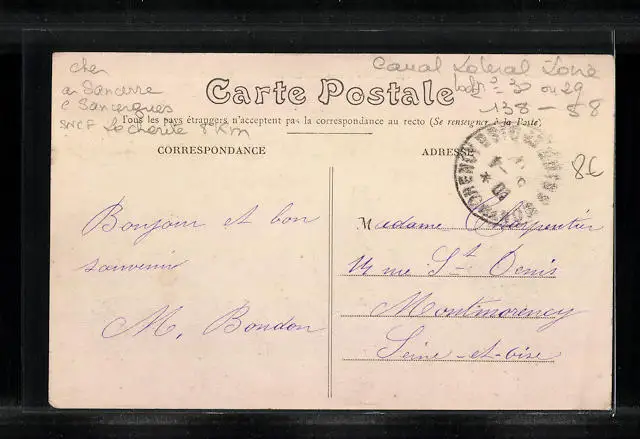 Cher
a Sancerre
c Sancergues
SNCF La charité 8 Km
Canal Latéral Loire
30 ou 29
138 - 58
Carte Postale
Tous les pays étrangers n'acceptent pas la correspondance au recto (Se renseigner à la Poste)
CORRESPONDANCE
ADRESSE
8€
Bonjour et bon
souvenir
M. Boudon
Madame Charpentier
14 rue St Denis
Montmorency
Seine-et-Oise